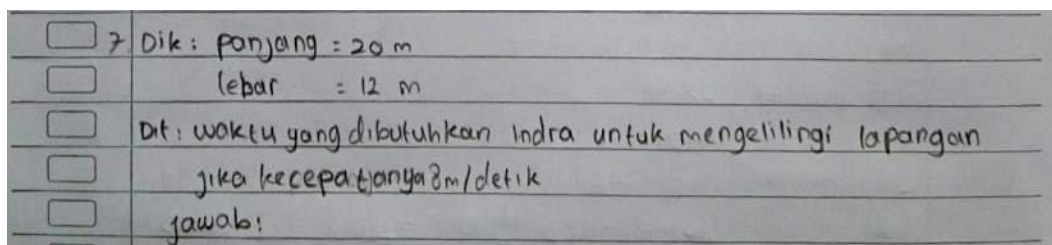 7. Dik : panjang = 20 m
lebar = 12 m
Dit : waktu yang dibutuhkan indra untuk mengelilingi lapangan
jika kecepatanya 8m/detik
jawab :